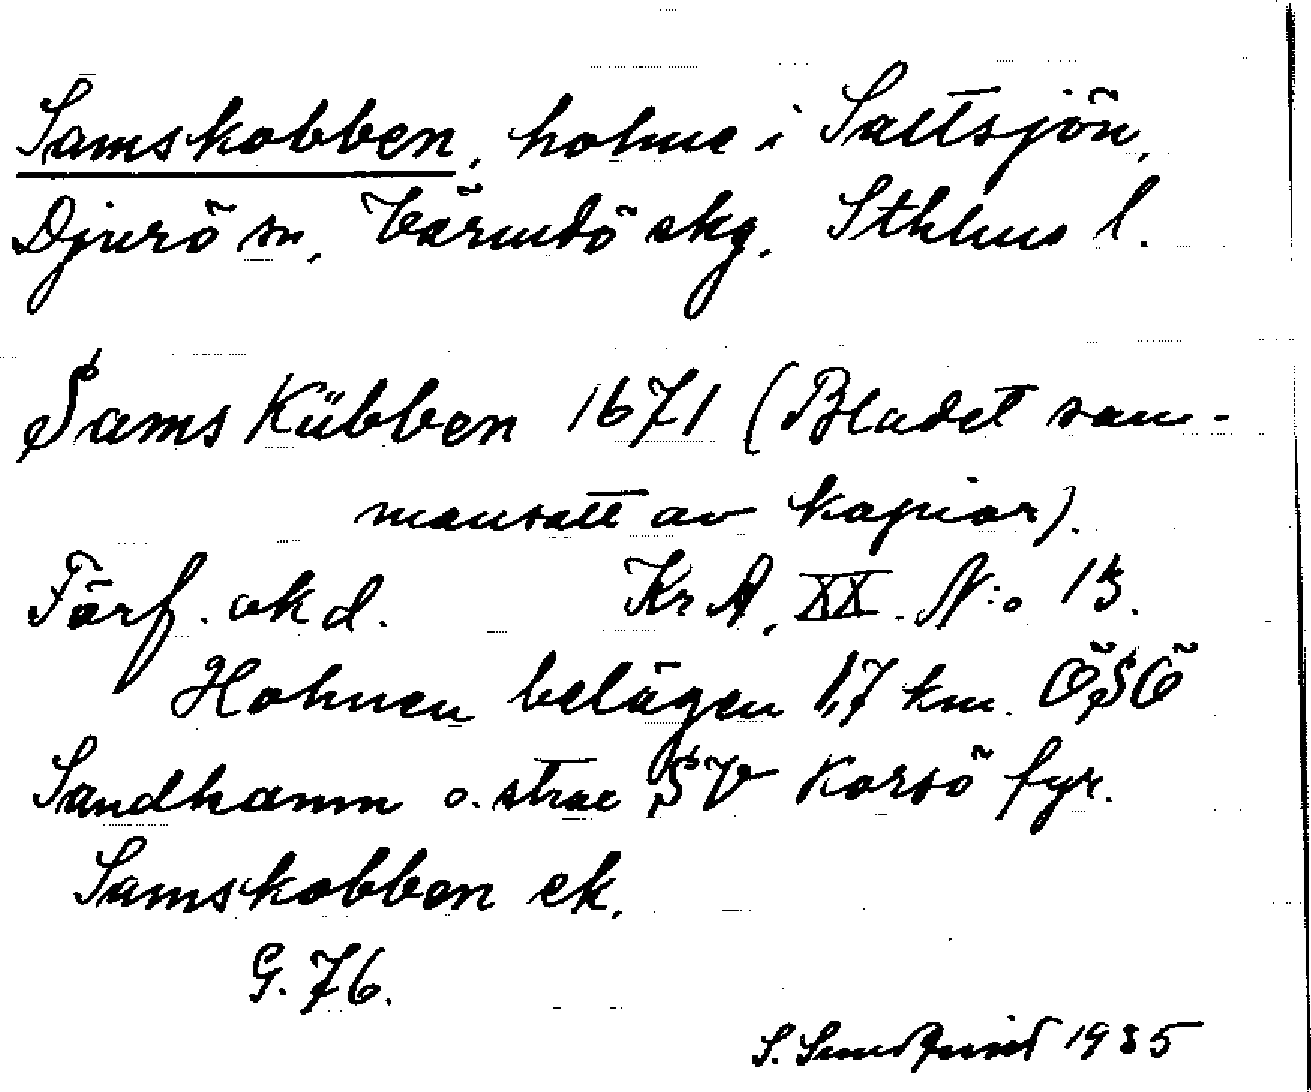 Samskobben, holme i Saltsjön,
Djurö sn, Värmdö skg. Sthlms l.
Sams Kübben 1671 (Bladet sam-
mansatt av kopior).
Förf. okd. KrA, XX. N:o 13.
Holmen belägen 1,7 km. ÖSÖ
Sandhamn o. strax SV Korsö fyr.
Samskobben ek.
G. 76.
S. Sundquist 1935